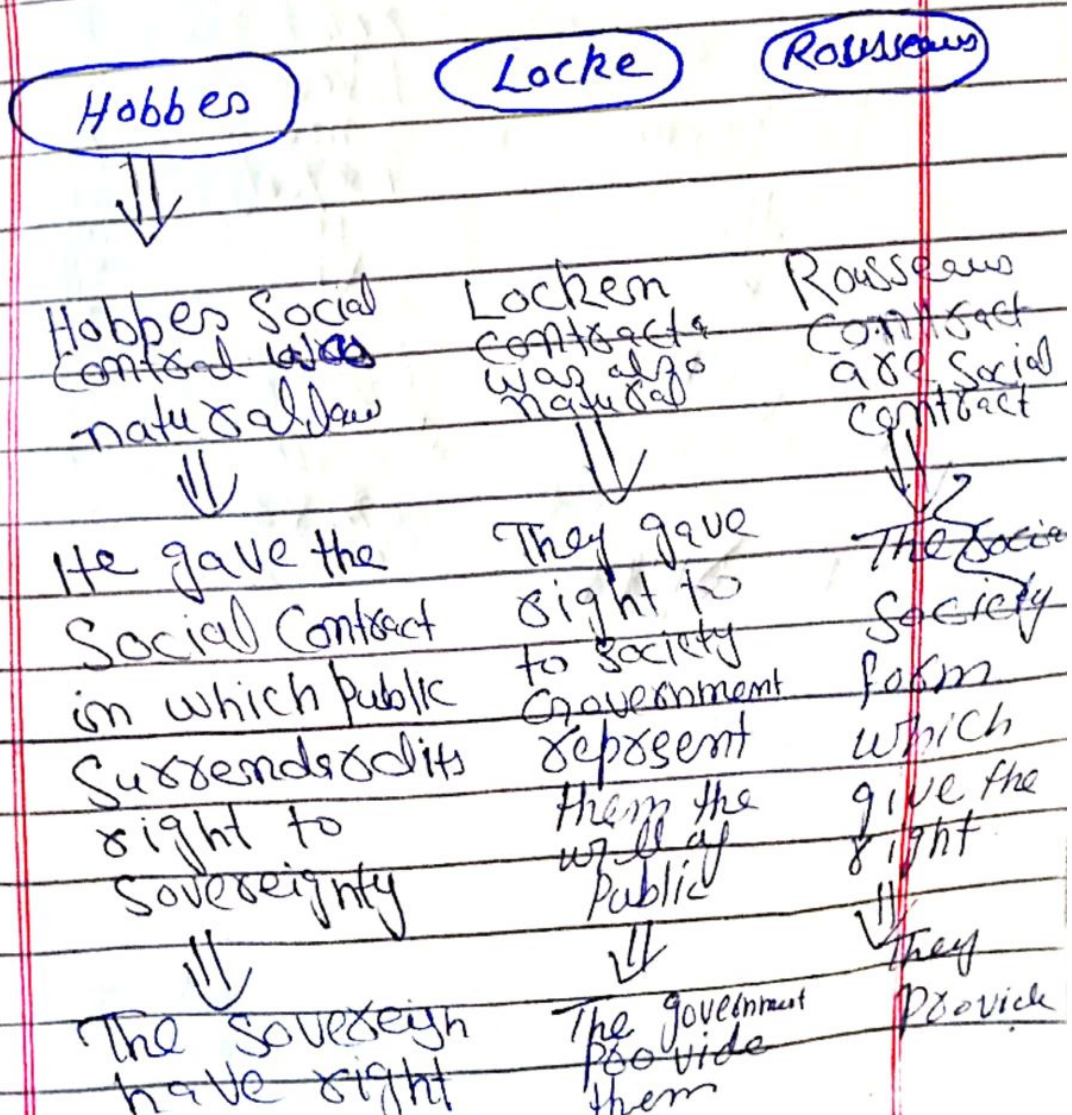 Hobbes
Locke
Rousseaus
Hobbes Social
contral was
natural law
He gave the
Social Contract
in which Public
Surrenderdits
right to
Sovereignty
The Sovereign
have right
Locken
contracts
was also
natural
They gave
right to
to society
Government
represent
them the
will of
Public
The government
provide
them
Rousseaus
contract
are Social
contract
The Socia
Society
form
which
give the
right
They
Provide